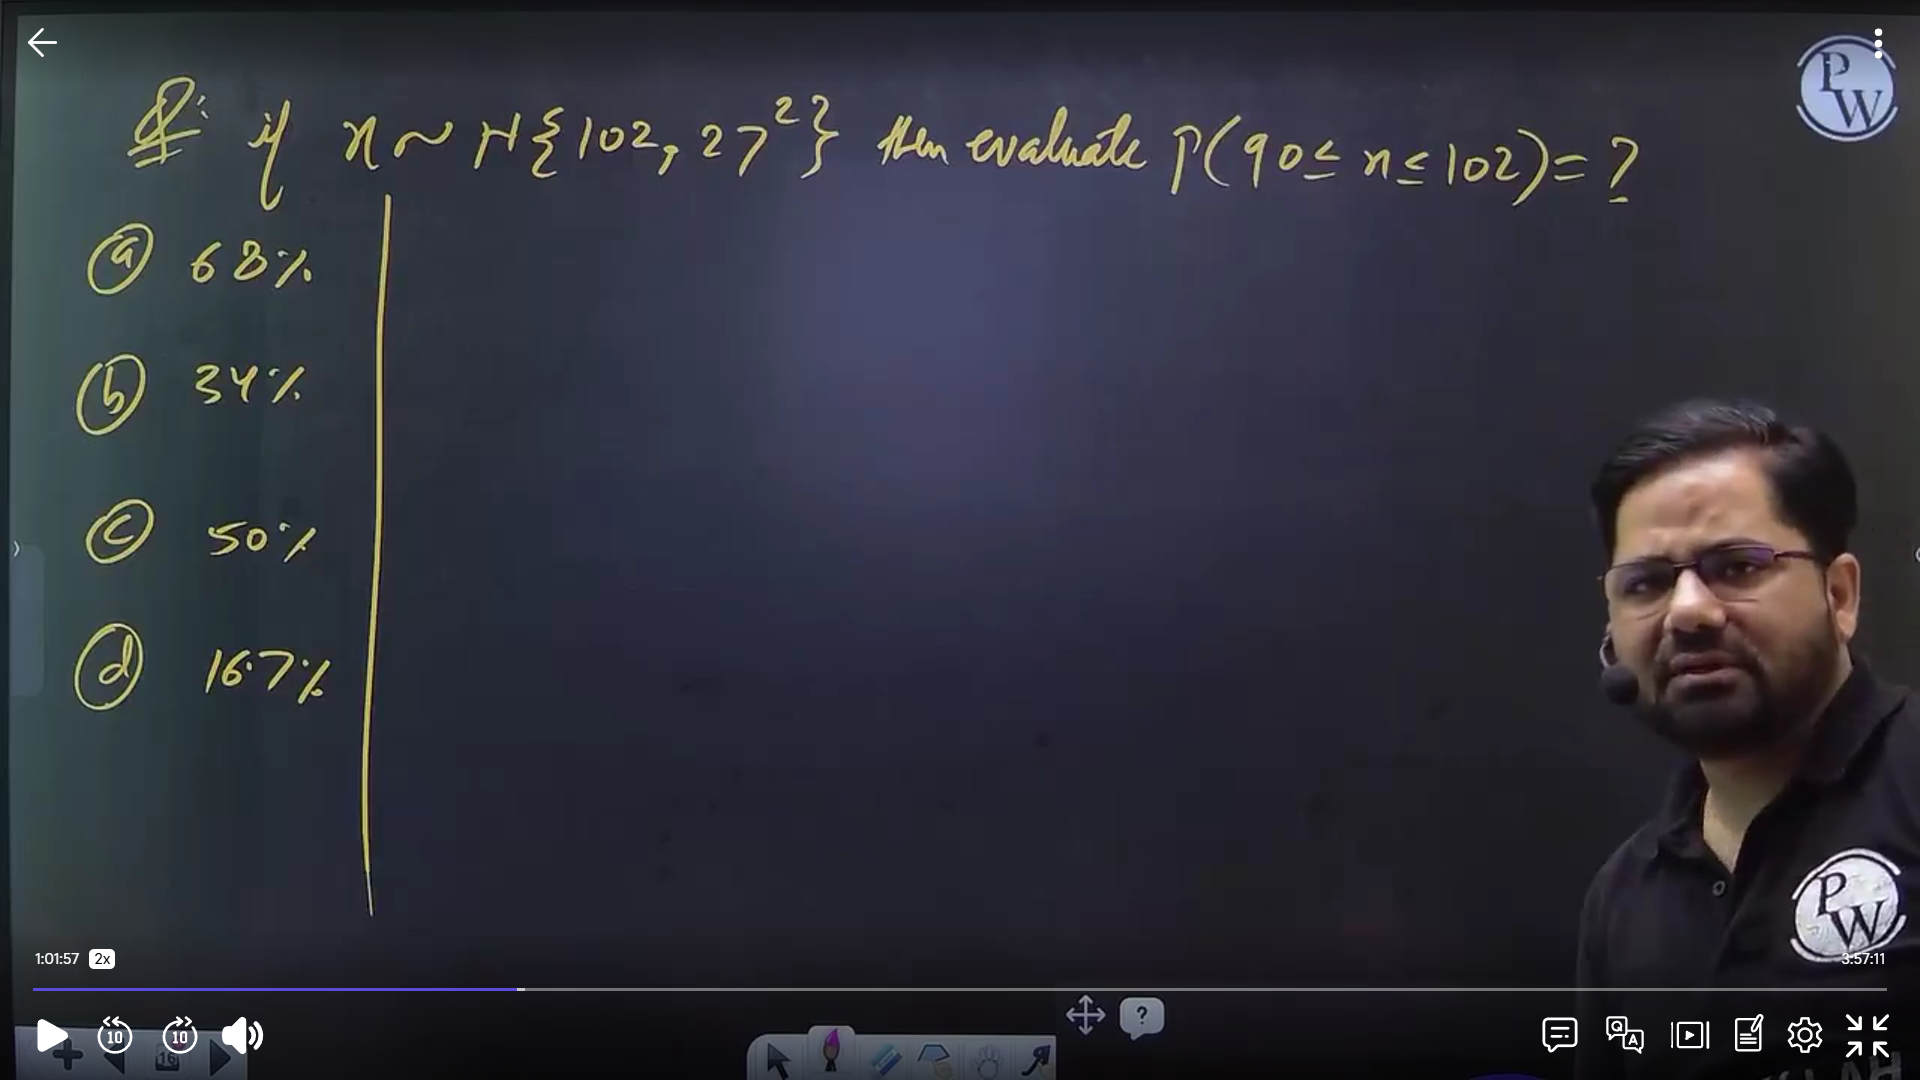 PW
Q: if x ~ N{102, 27²} then evaluate P(90 ≤ x ≤ 102) = ?
a 68%
b 34%
c 50%
d 16.7%
PW
1:01:57 2x
3:57:11
?
10 10
Q A
16